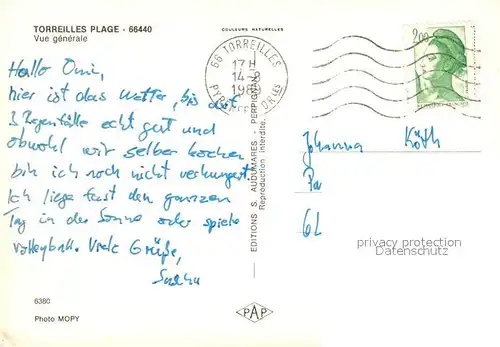 TORREILLES PLAGE - 66440
Vue générale
COULEURS NATURELLES
66 TORREILLES
17 H
14-8
2,00
Hallo Omi,
hier ist das Wetter, bis auf
3 Regenfälle echt gut und
obwohl wir selber kochen
bin ich noch nicht verhungert.
Ich liege fast den ganzen
Tag in der Sonne oder spiele
Volleyball. Viele Grüße,
Johanna Köth
6380
Photo MOPY
EDITIONS S. AUDUMARES - PERPIGNAN
Reproduction interdite.
PAP
privacy protection
Datenschutz